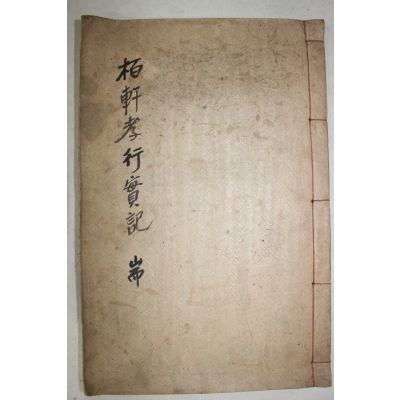 栢軒孝行實記 耑